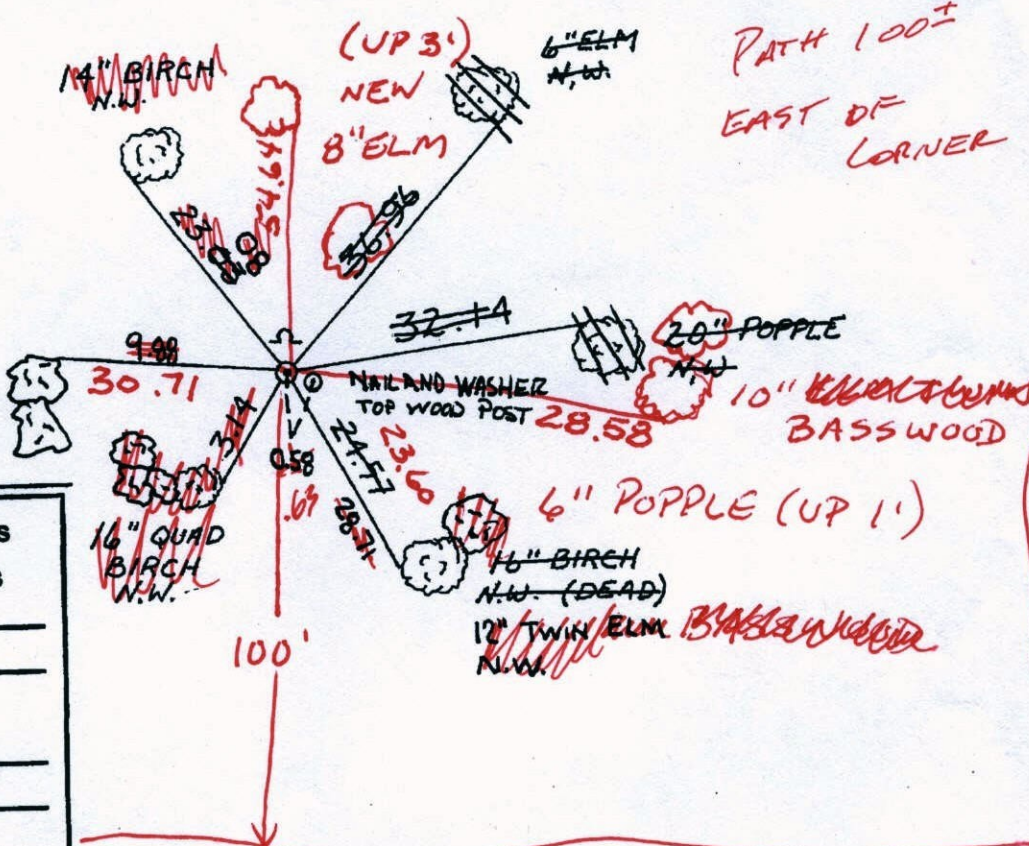 14" BIRCH
N.W.
(UP 3')
NEW
8" ELM
6" ELM
N.W.
PATH 100±
EAST OF
CORNER
36.96
32.14
20" POPPLE
N.W.
9.88
30.71
NAIL AND WASHER
TOP WOOD POST
28.58
10"
BASSWOOD
3.74
0.58
.63
24.57
23.60
28.71
16" QUAD
BIRCH
N.W.
6" POPPLE (UP 1')
16" BIRCH
N.W. (DEAD)
12" TWIN ELM
N.W.
100'